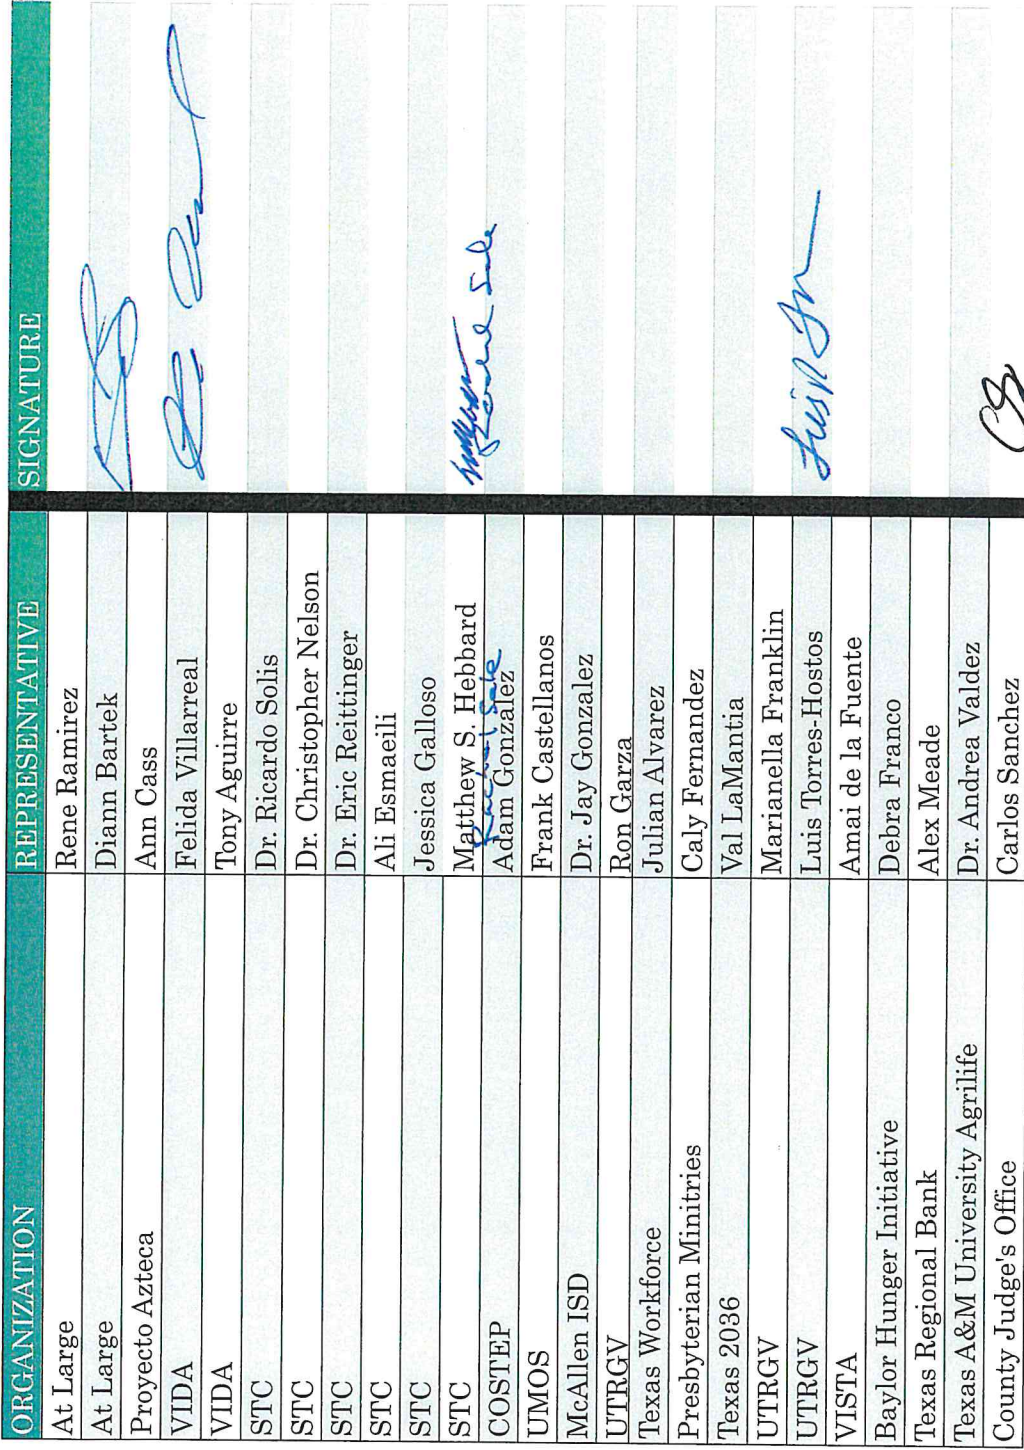 ORGANIZATION REPRESENTATIVE SIGNATURE
At Large Rene Ramirez
At Large Diann Bartek
Proyecto Azteca Ann Cass
VIDA Felida Villarreal
VIDA Tony Aguirre
STC Dr. Ricardo Solis
STC Dr. Christopher Nelson
STC Dr. Eric Reittinger
STC Ali Esmaeili
STC Jessica Galloso
STC Matthew S. Hebbard
Rachel Sale Rachel Sale
COSTEP Adam Gonzalez
UMOS Frank Castellanos
McAllen ISD Dr. Jay Gonzalez
UTRGV Ron Garza
Texas Workforce Julian Alvarez
Presbyterian Minitries Caly Fernandez
Texas 2036 Val LaMantia
UTRGV Marianella Franklin
UTRGV Luis Torres-Hostos
VISTA Amai de la Fuente
Baylor Hunger Initiative Debra Franco
Texas Regional Bank Alex Meade
Texas A&M University Agrilife Dr. Andrea Valdez
County Judge's Office Carlos Sanchez